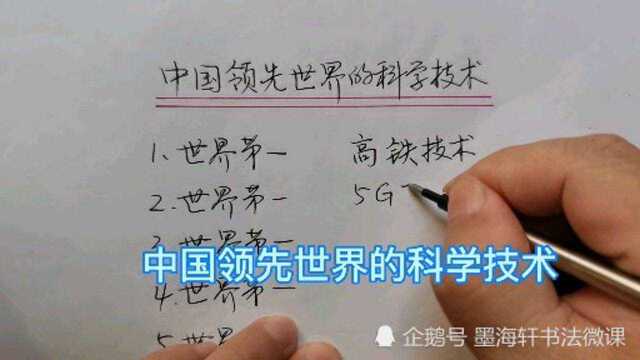 中国领先世界的科学技术
1.世界第一 高铁技术
2.世界第一 5G
3.世界第一
中国领先世界的科学技术
4.世界第一
5.世界
企鹅号 墨海轩书法微课